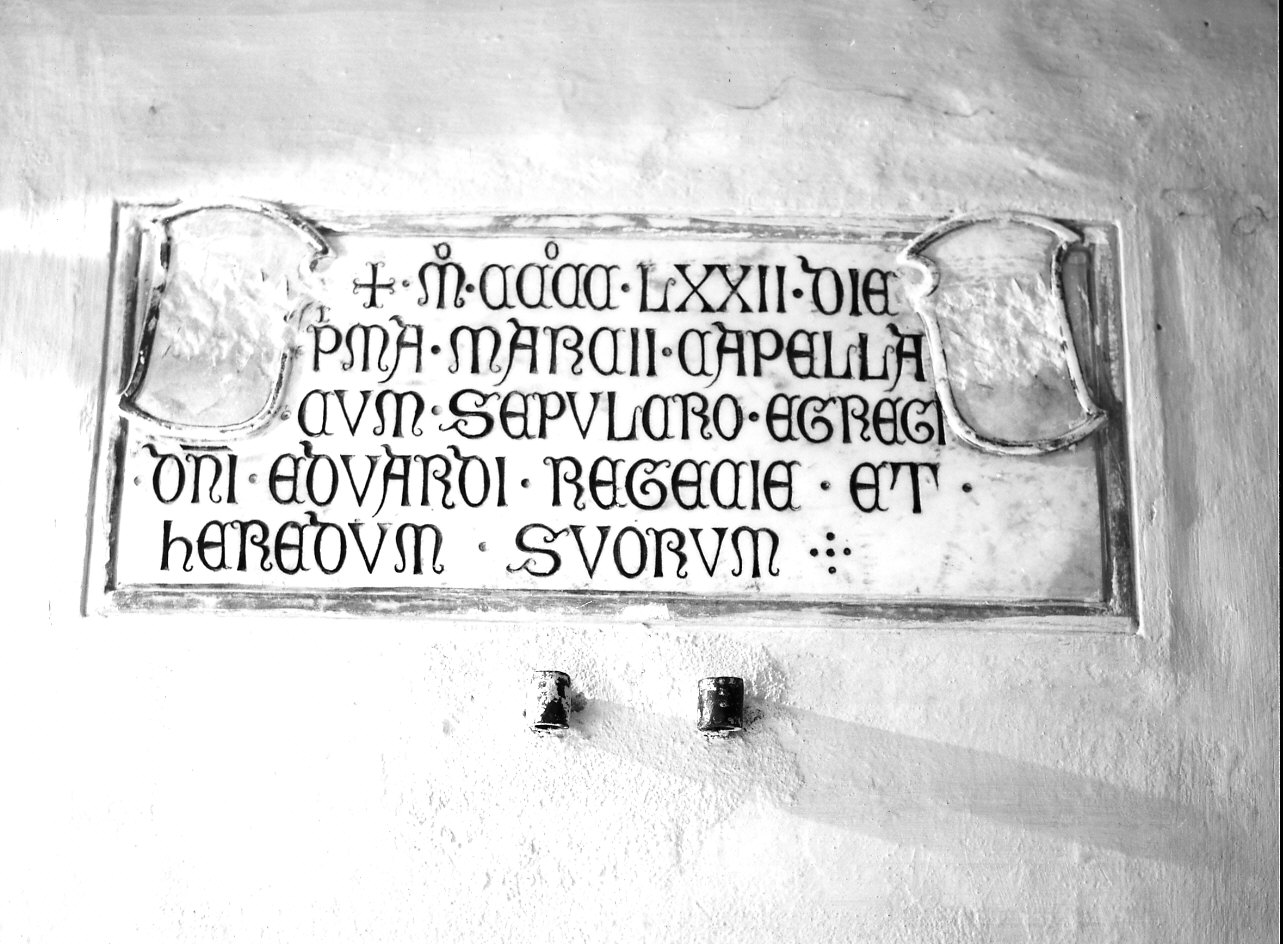 +·Mº·CCºCC·LXXII·DIE
PͥMA·MARCII·CAPELLA
CVM·SEPVLCRO·EGREGI
·DN̄I·EDVARDI·REGECIE·ET·
hEREDVM·SVORVM⁘